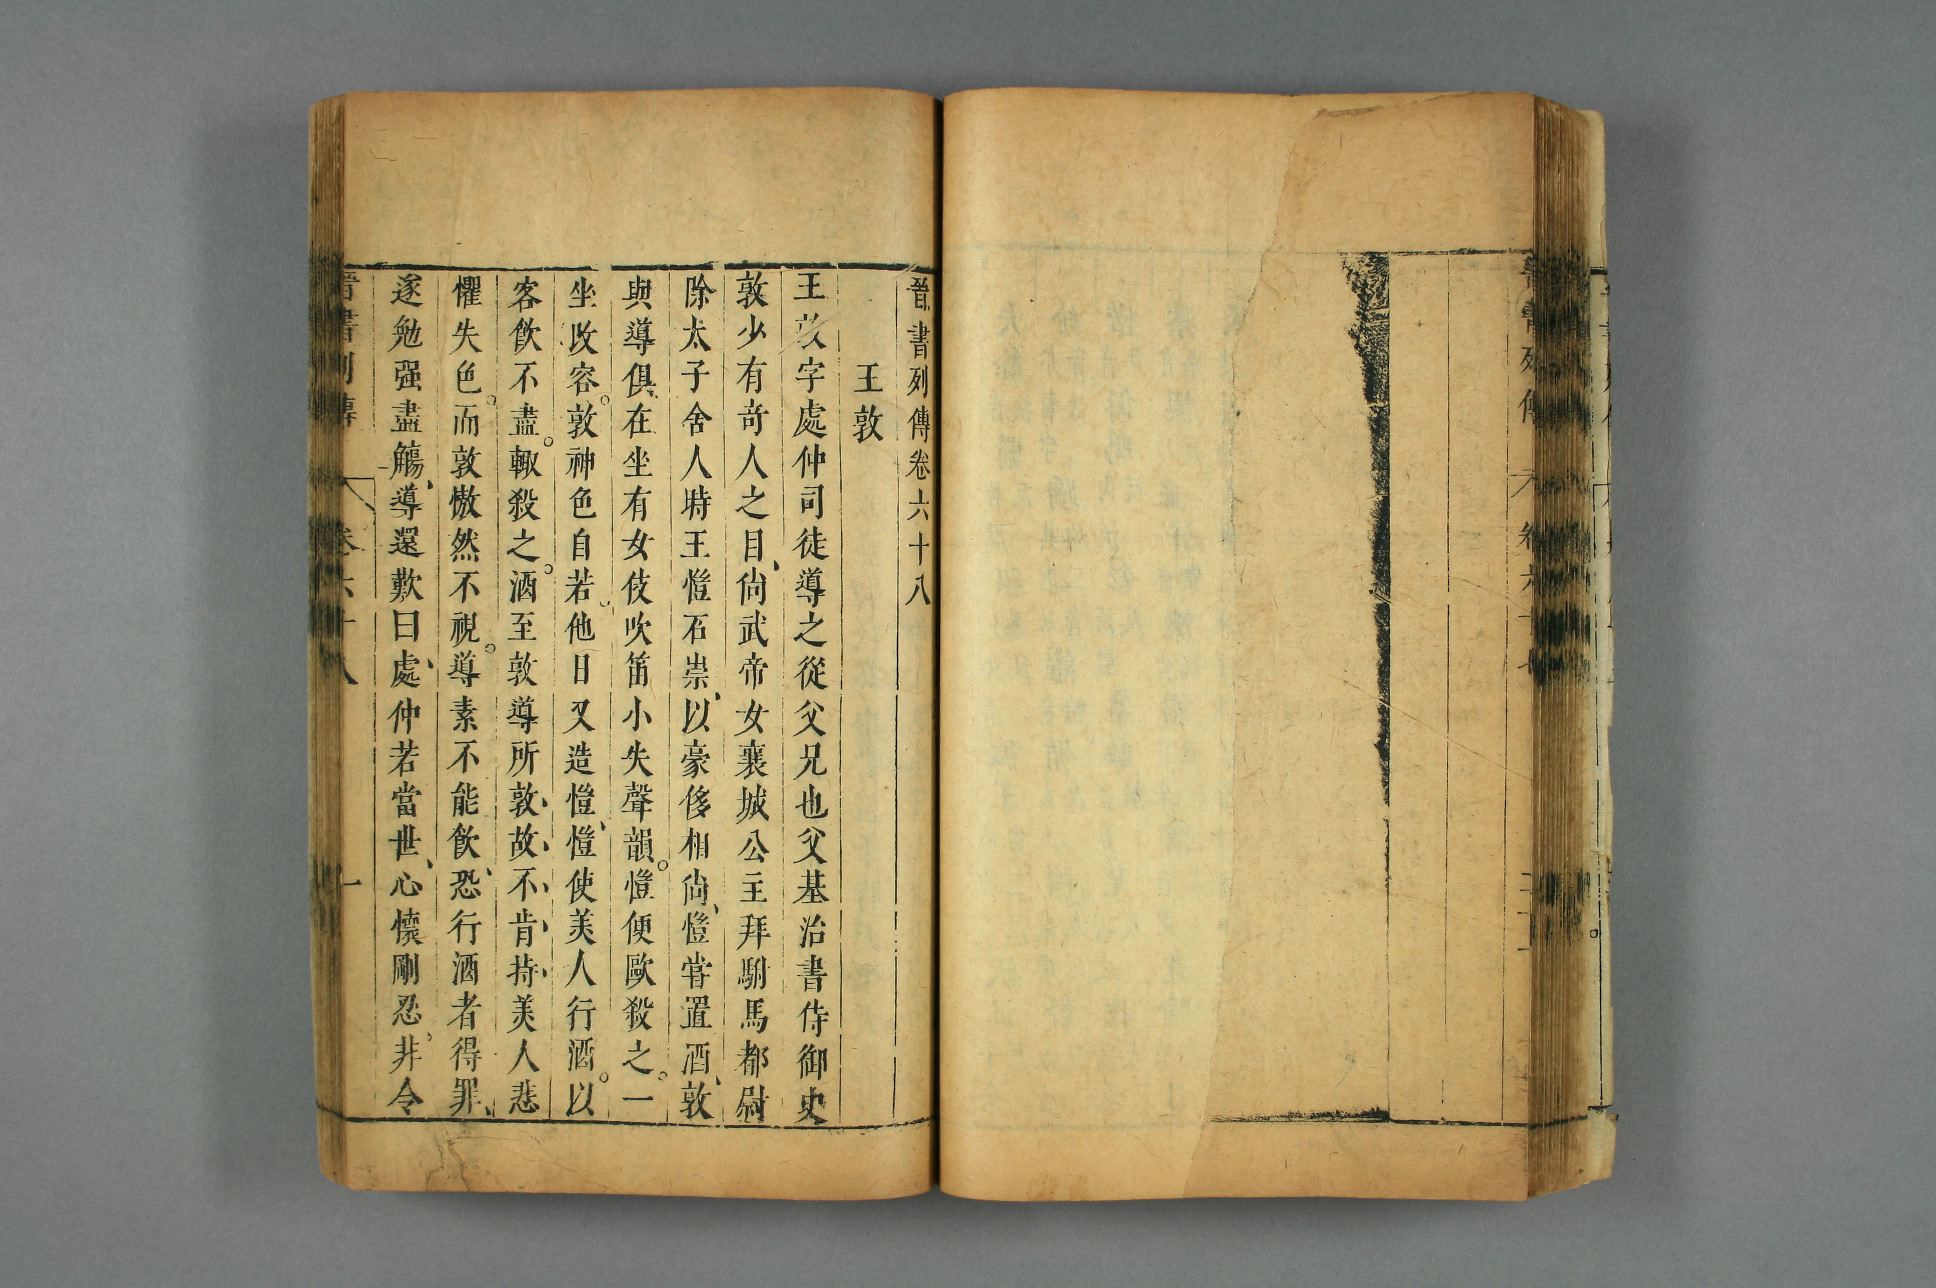 晉書列傳
卷六十七
晉書列傳卷六十八
王敦
王敦字處仲司徒導之從父兄也父基治書侍御史
敦少有奇人之目、尙武帝女襄城公主拜駙馬都尉
除太子舍人時王愷石崇、以豪侈相尙、愷甞置酒、敦
與導俱在坐有女伎吹笛小失聲韻。愷便毆殺之。一
坐改容。敦神色自若。他日又造愷、愷使美人行酒。以
客飮不盡。輙殺之。酒至敦導所敦、故、不、肯、持、美人悲
懼失色。而敦慠然不視。導素不能飮、恐行酒者得罪、
遂勉强盡觴、導還歎曰、處仲若當世、心懷剛忍。非令
晉書列傳
卷六十八
一